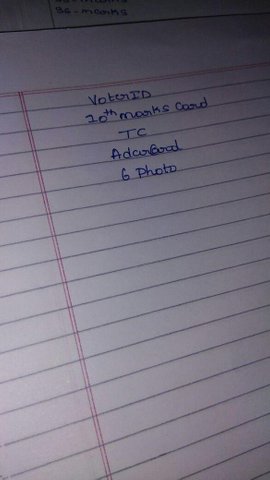 36-marks
VoterID
10th marks Card
TC
AdarCard
6 Photo